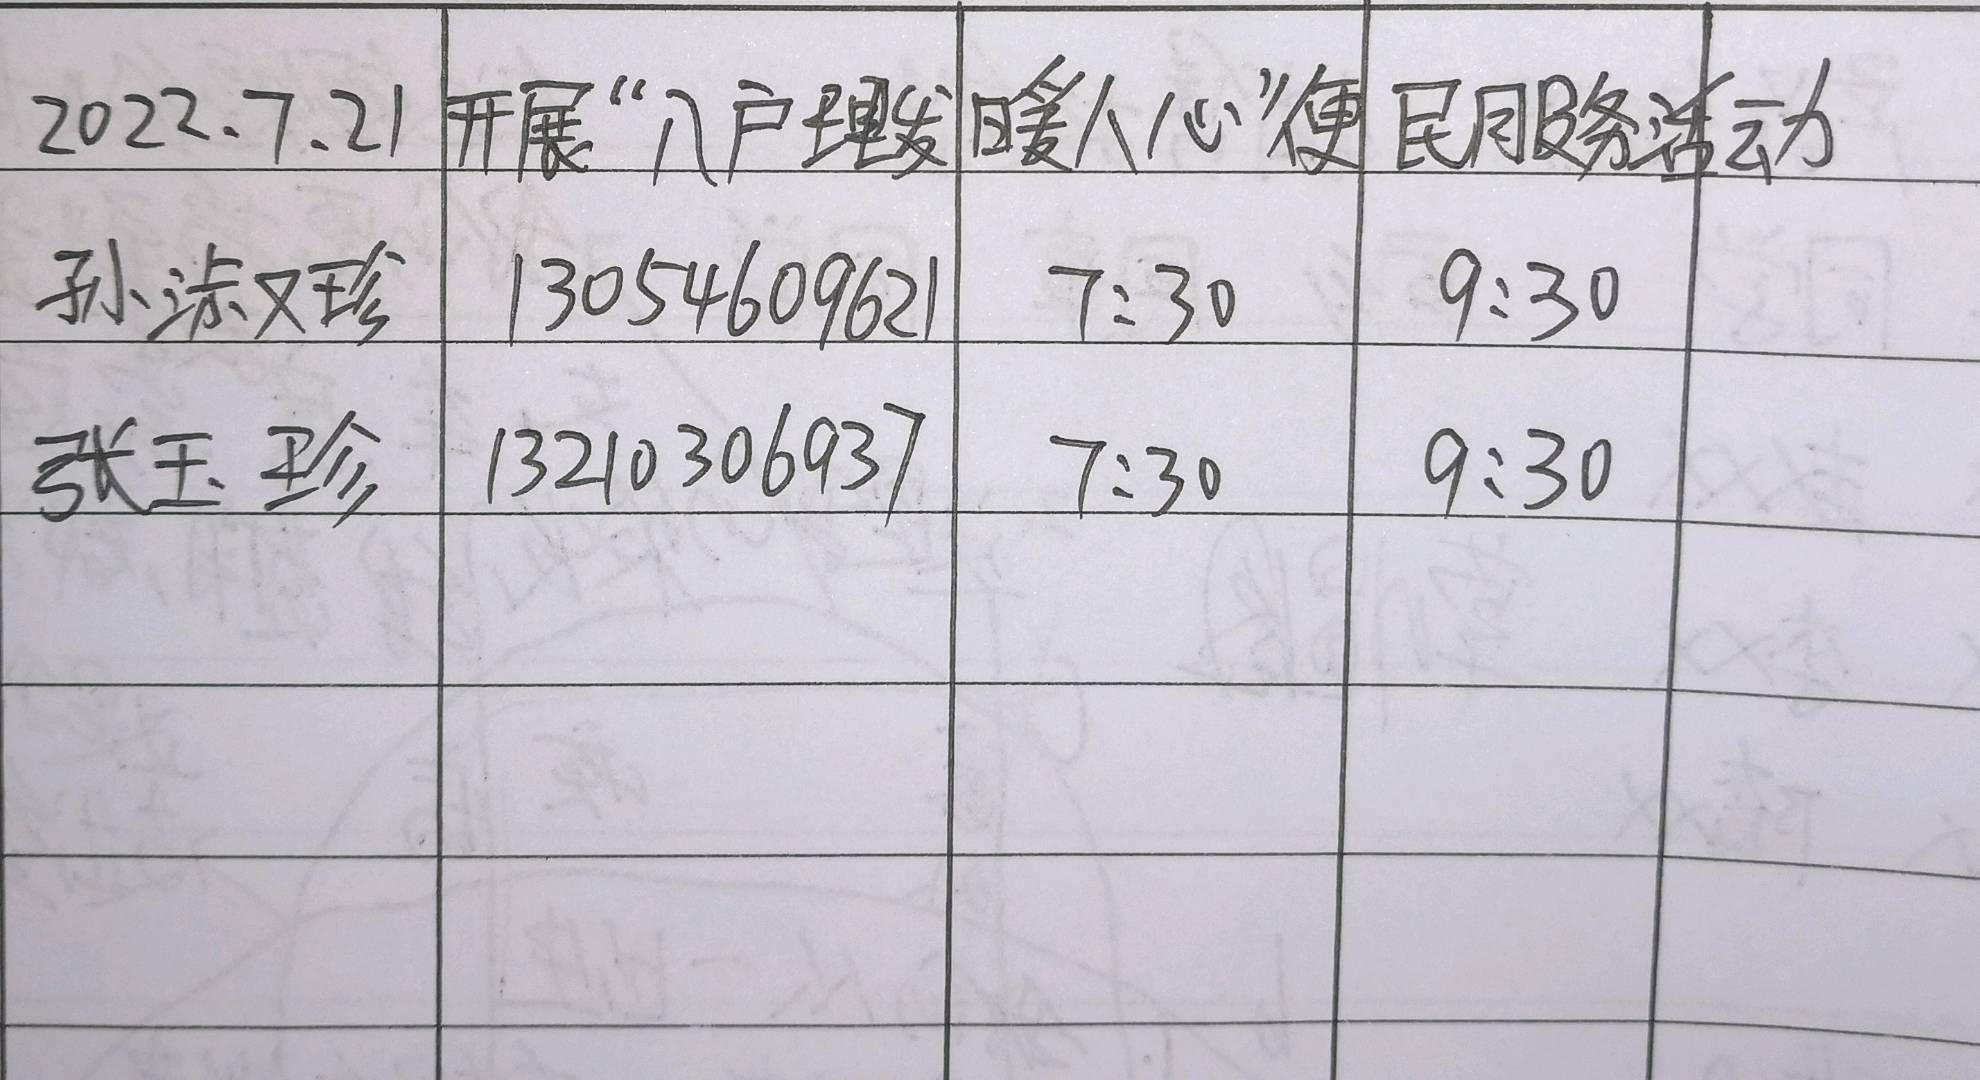 2022.7.21 开展“入户理发 暖人心”便民服务活动
孙淑珍 13054609621 7:30 9:30
张玉珍 13210306937 7:30 9:30